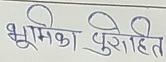 भूमिका पुरोहित